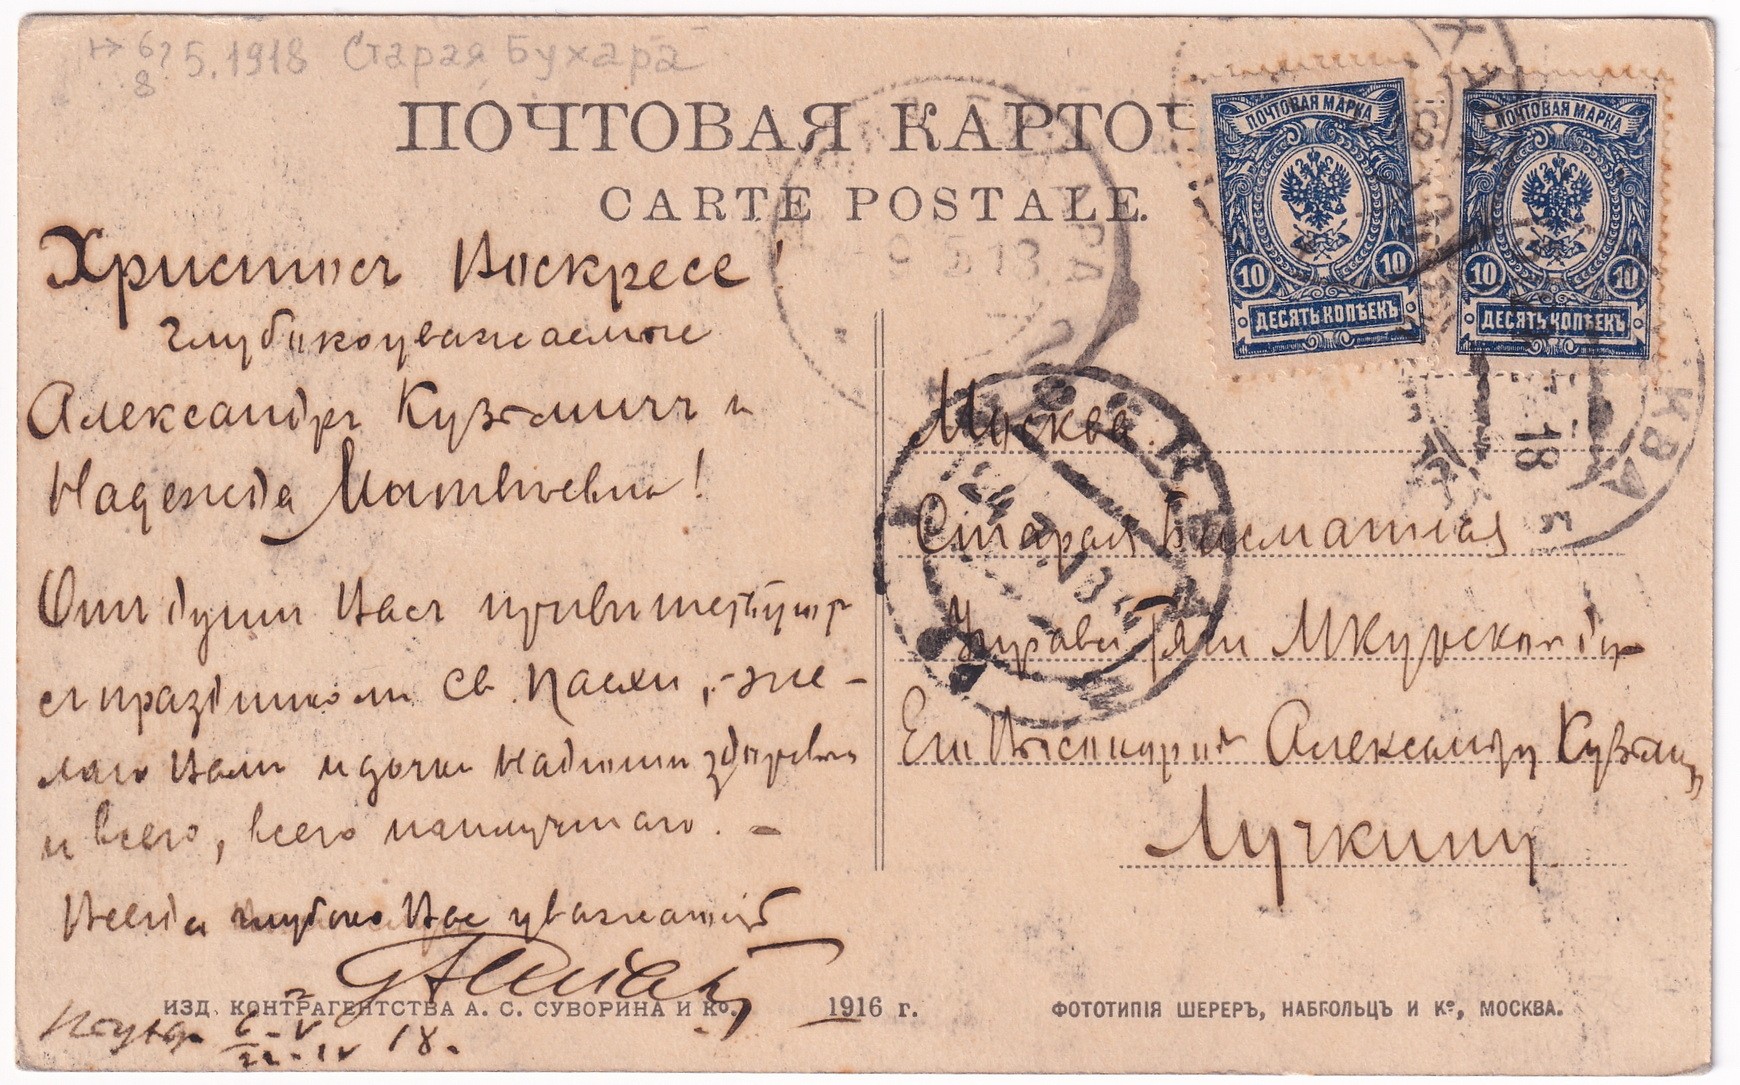 5.1918 Старая Бухара
ПОЧТОВАЯ КАРТОЧ
CARTE POSTALE.
ПОЧТОВАЯ МАРКА
10 10
ДЕСЯТЬ КОПѢЕКЪ
ПОЧТОВАЯ МАРКА
10 10
ДЕСЯТЬ КОПѢЕКЪ
Христосъ Воскресе!
Глубокоуважаемые
Александръ Кузьмичъ и
Надежда Матвѣевна!
Отъ души Васъ привѣтствую
съ праздникомъ Св. Пасхи, - же-
лаю Вамъ и дочкѣ здоровья
и всего, всего наилучшаго. -
Всегда глубоко Вас уважающій
18.
Москва.
Старая Басманная
Управленіе М Курской ж д
Его Высокородію Александру Кузьмичу
Лучкину
МОСКВА
18
ИЗД. КОНТРАГЕНТСТВА А. С. СУВОРИНА И Ко. 1916 г. ФОТОТИПІЯ ШЕРЕРЪ, НАБГОЛЬЦЪ И Ко, МОСКВА.